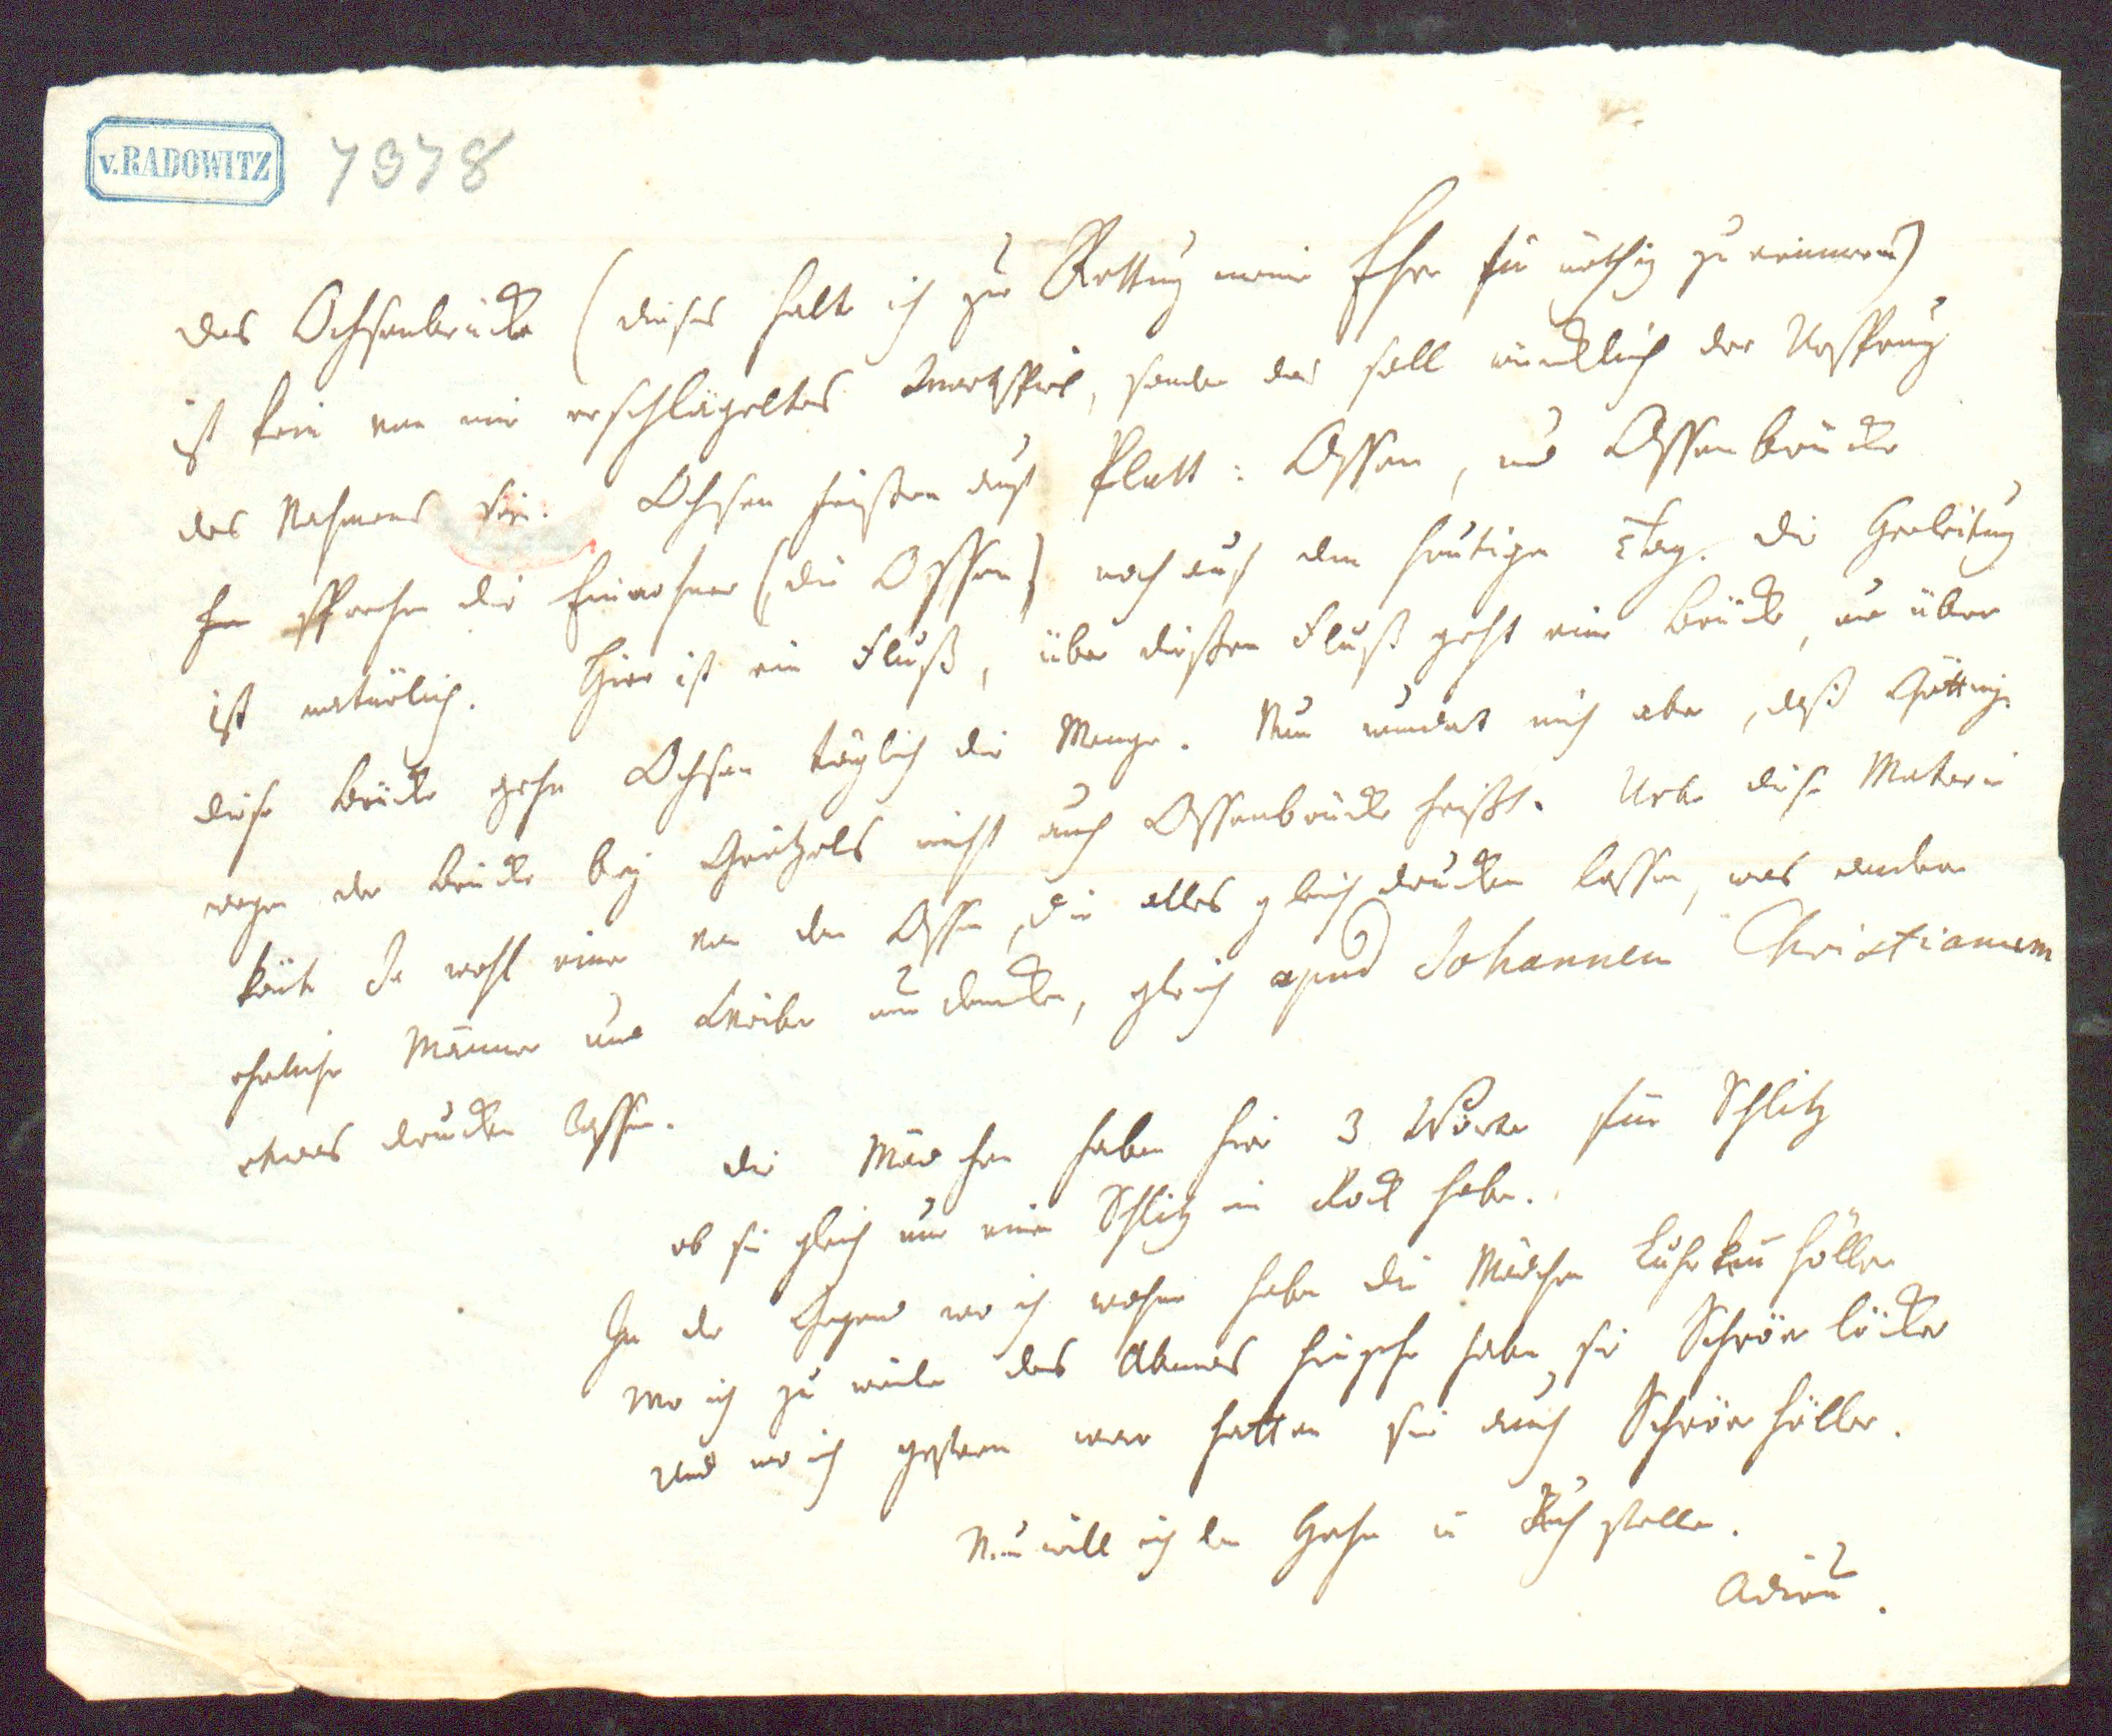 v. RADOWITZ 7378
Das Ochsenbrücke (dieses halt ich zur Rettung meiner Ehre für nöthig zu erinnern)
ist kein von mir erschlägeltes Wortspiel, sonder das soll würcklich der Ursprung
des Nahmens sein. Ochsen heißen auf Platt: Ossen, und Ossenbrücke
sprechen die Einwohner (die Ossen) noch auf den heutigen Tag. Die Herleitung
ist natürlich. Hier ist ein Fluß, über dießen Fluß geht eine Brücke, und über
diese Brücke gehn Ochsen täglich die Menge. Nun wundert mich aber, daß Götting.
wegen der Brücke bey Grätzels nicht auch Ossenbrücke heißt. Ueber diese Materie
könte Ja wohl einer von den Ossen, die alles gleich drucken lassen, was andere
ehrliche Männer und Weiber nur dencken, gleich apud Johannem Christianum
etwas drucken lassen.
Die Mädchen haben hier 3 Wörter für Schlitz
ob sie gleich nur einen Schlitz im Rock haben.
In der Gegend wo ich wohne haben die Mädchen höller
wo ich zu weilen des Abends hingehe haben sie Schrövelöcker
und wo ich gestern war hatten sie auch Schrövehöller.
Nun will ich den Hahn in Ruh stellen.
Adieu.